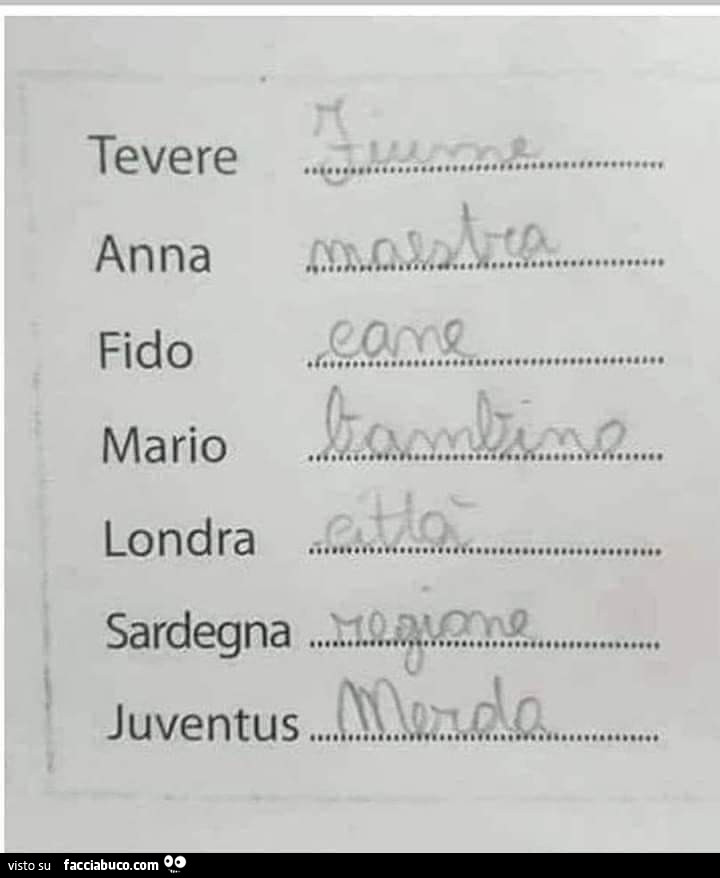 Tevere Fiume
Anna maestra
Fido cane
Mario bambino
Londra città
Sardegna regione
Juventus Merda
visto su facciabuco.com